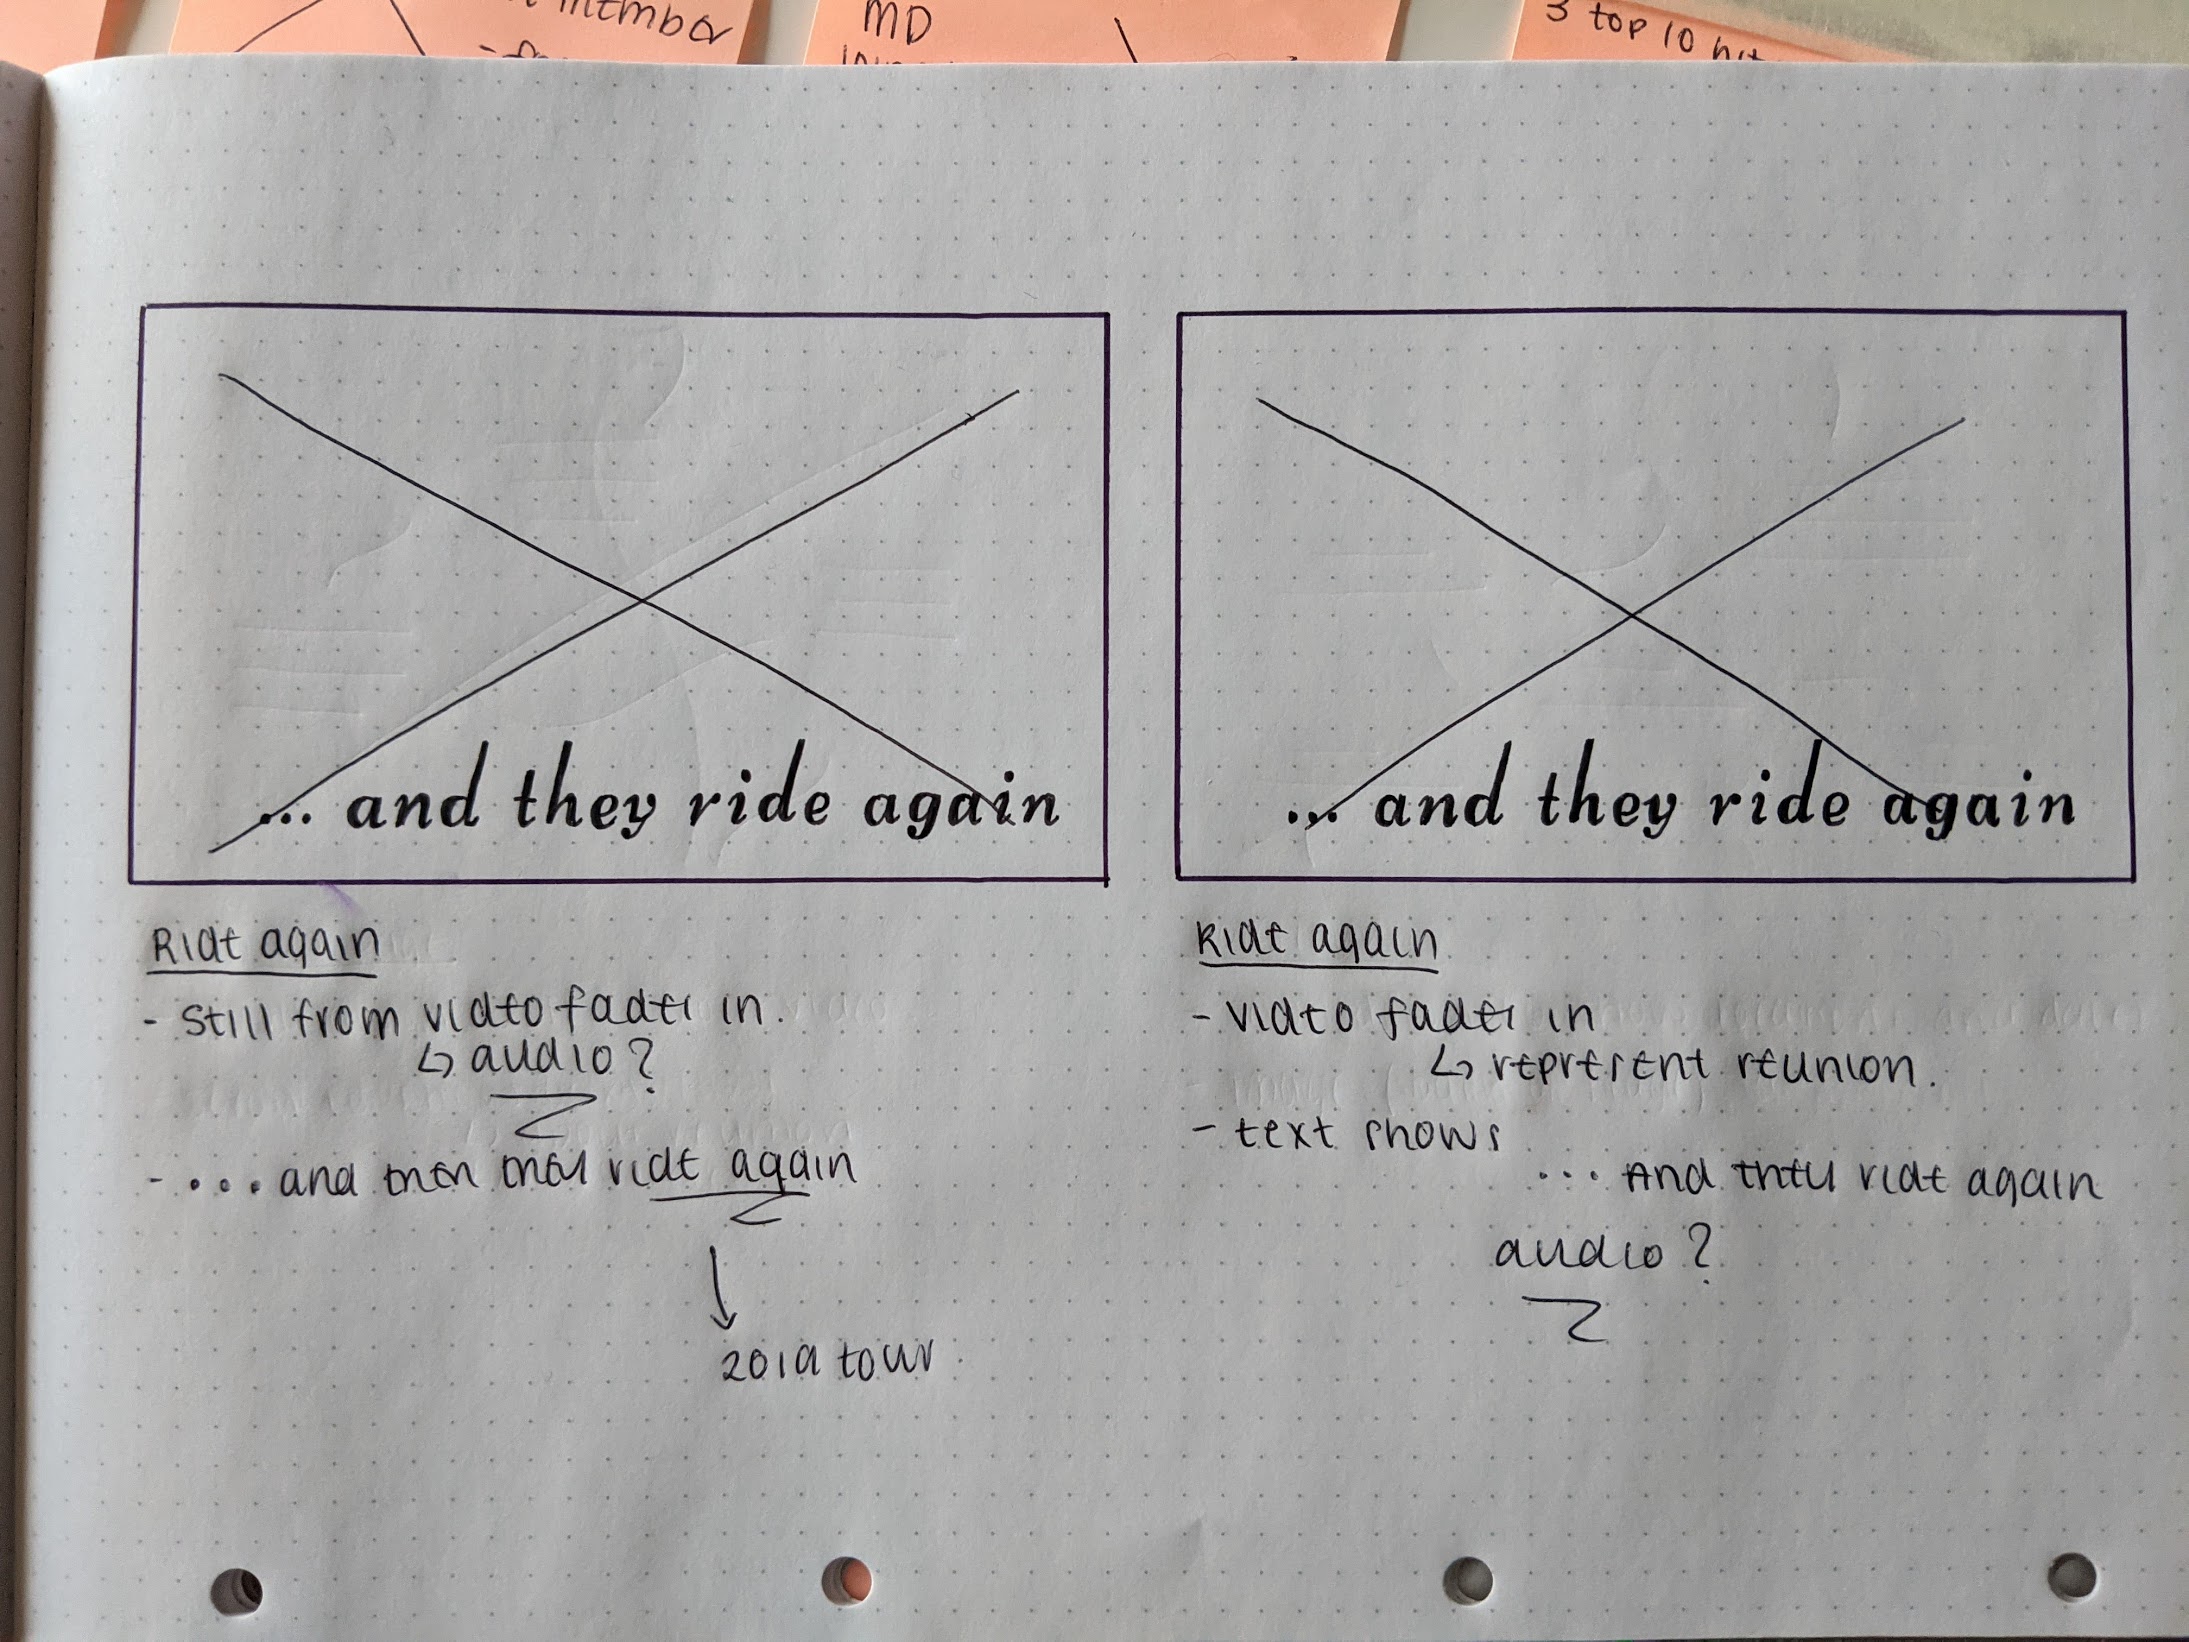 member
MD
3 top 10 hit
... and they ride again
... and they ride again
Ride again
- Still from video fades in.
↳ audio?
- ... and then they ride again
↓
2019 tour.
Ride again
- video fades in
↳ represent reunion.
- text shows
... And they ride again
audio?